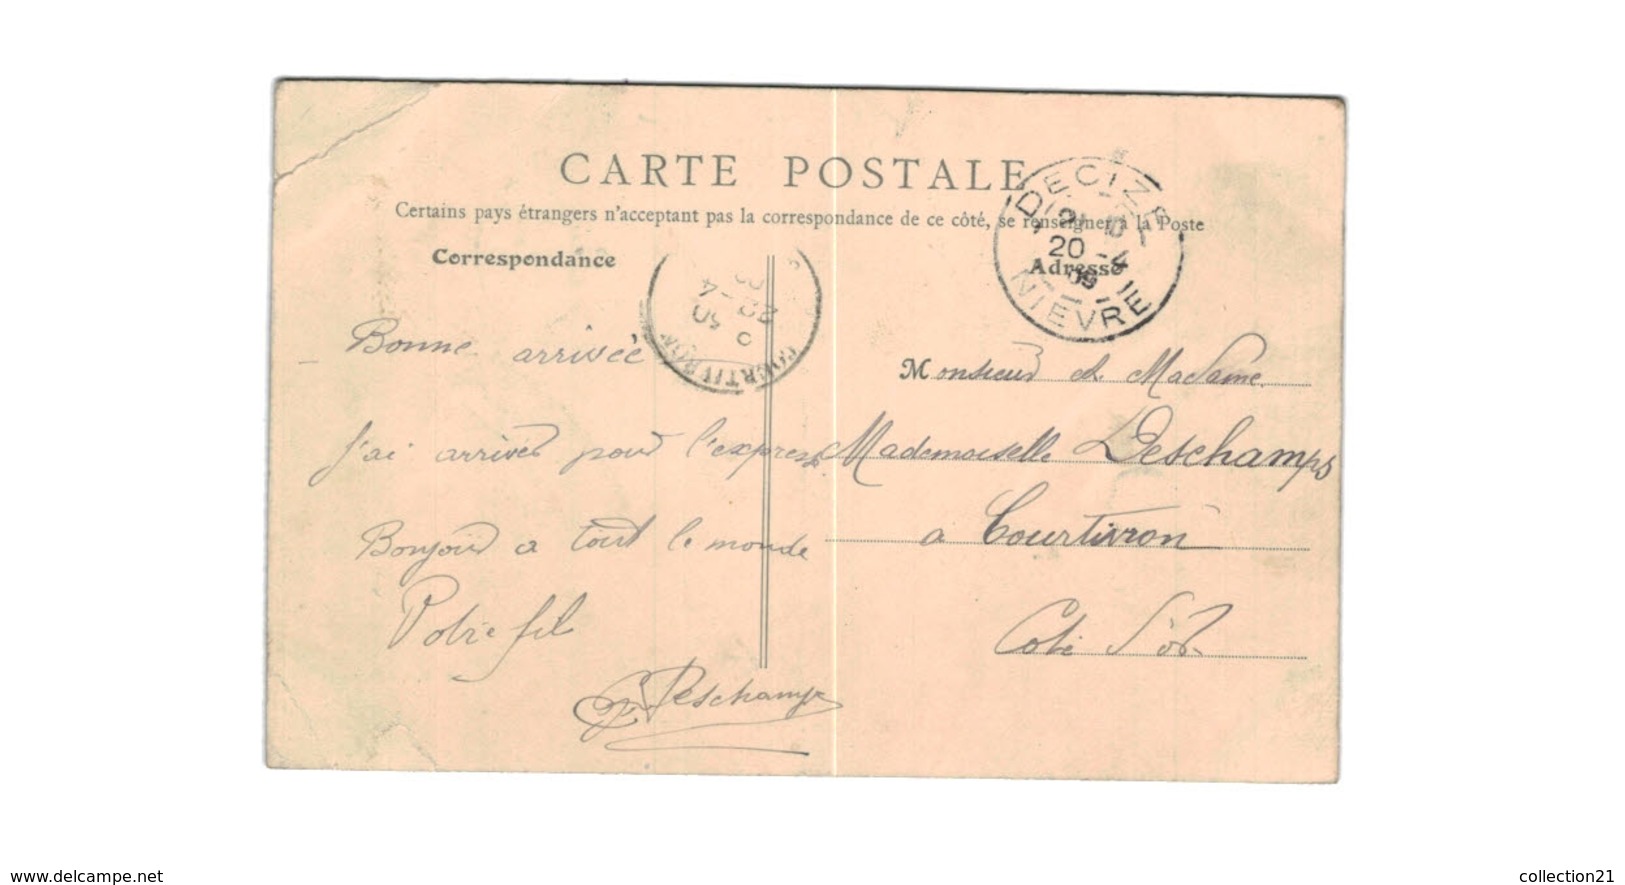 CARTE POSTALE
Certains pays étrangers n'acceptant pas la correspondance de ce côté, se renseigner à la Poste
Correspondance
Adresse
DECIZE
20 -4
09
NIEVRE
COURTIVRON
30
20 -4
Bonne arrivée
J'ai arrivés pour l'express
Bonjour a tout le monde
Votre fil
Deschamps
Monsieur et Madame
Mademoiselle Deschamps
a Courtivron
Cote d'or
www.delcampe.net
collection21